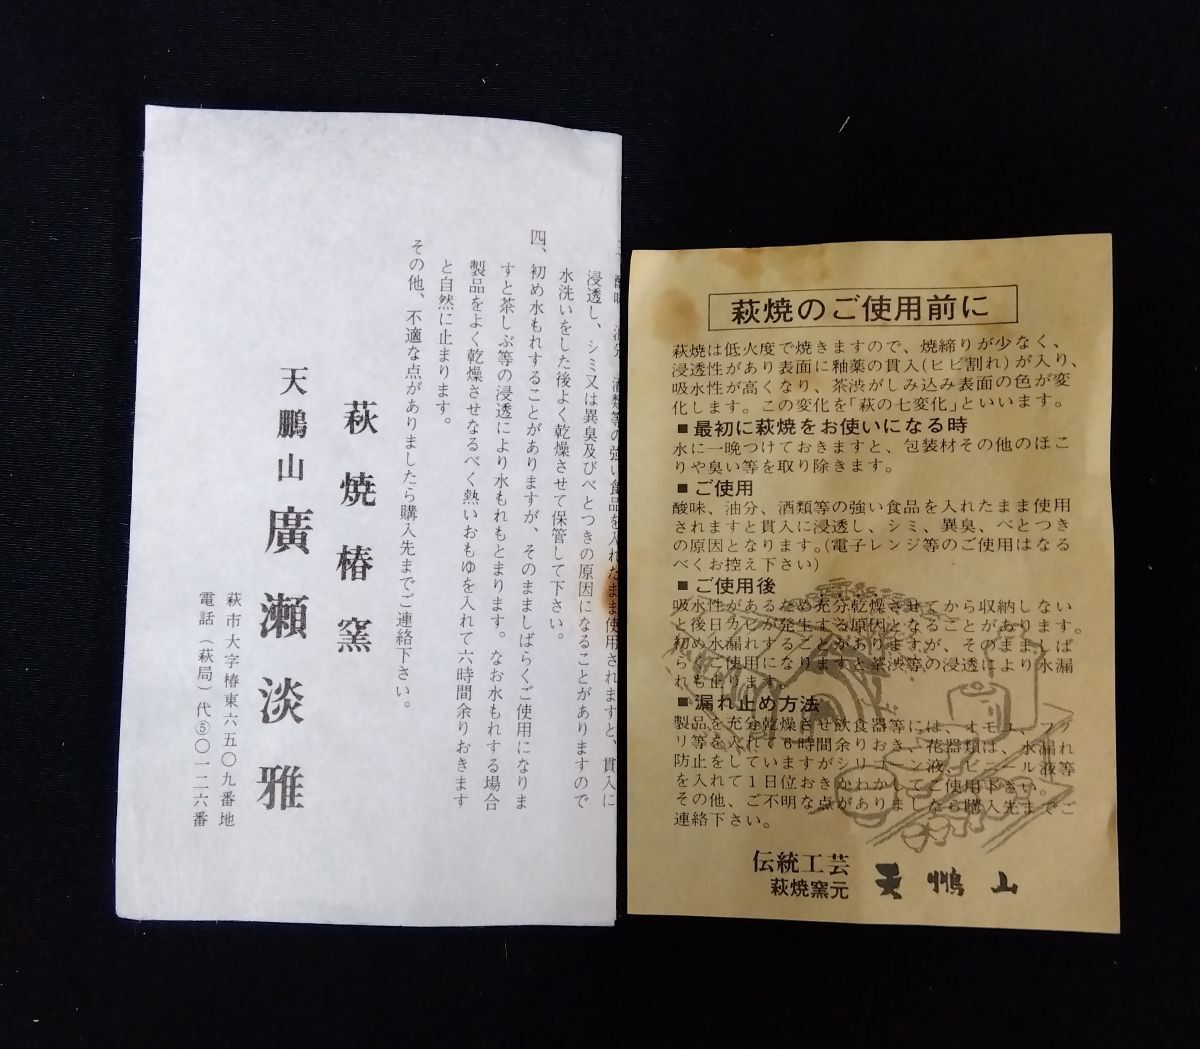 酸味、油分、酒類等の強い食品を入れたまま使用されますと、貫入に
浸透し、シミ又は異臭及びべとつきの原因になることがありますので
水洗いをした後よく乾燥させて保管して下さい。
四、初め水もれすることがありますが、そのましばらくご使用になりま
すと茶しぶ等の浸透により水もれもとまります。なお水もれする場合
製品をよく乾燥させなるべく熱いおもゆを入れて六時間余りおきます
と自然に止まります。
その他、不適な点がありましたら購入先までご連絡下さい。
萩焼椿窯
天鵬山 廣瀬淡雅
萩市大字椿東六五〇九番地
電話(萩局)代⑤〇一二六番
萩焼のご使用前に
萩焼は低火度で焼きますので、焼締りが少なく、
浸透性があり表面に釉薬の貫入(ヒビ割れ)が入り、
吸水性が高くなり、茶渋がしみ込み表面の色が変
化します。この変化を「萩の七変化」といいます。
■最初に萩焼をお使いになる時
水に一晩つけておきますと、包装材その他のほこ
りや臭い等を取り除きます。
■ご使用
酸味、油分、酒類等の強い食品を入れたまま使用
されますと貫入に浸透し、シミ、異臭、べとつき
の原因となります。(電子レンジ等のご使用はなる
べくお控え下さい)
■ご使用後
吸水性があるため充分乾燥させてから収納しない
と後日カビが発生する原因となることがあります。
初め水漏れすることがありますが、そのまましば
らくご使用になりますと茶渋等の浸透により水漏
れも止ります。
■漏れ止め方法
製品を充分乾燥させ飲食器等には、オモユ、フノ
リ等を入れて6時間余りおき、花器類は、水漏れ
防止をしていますがシリコーン液、ビニール液等
を入れて1日位おきかわかしてご使用下さい。
その他、ご不明な点がありましたら購入先までご
連絡下さい。
伝統工芸
萩焼窯元 天鵬山